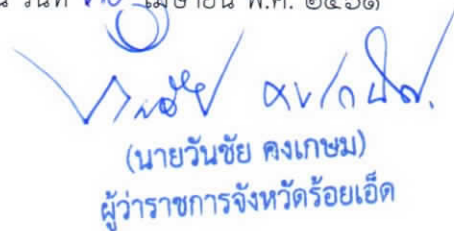 วันที่ เมษายน พ.ศ. ๒๕๖๑
(นายวันชัย คงเกษม)
ผู้ว่าราชการจังหวัดร้อยเอ็ด